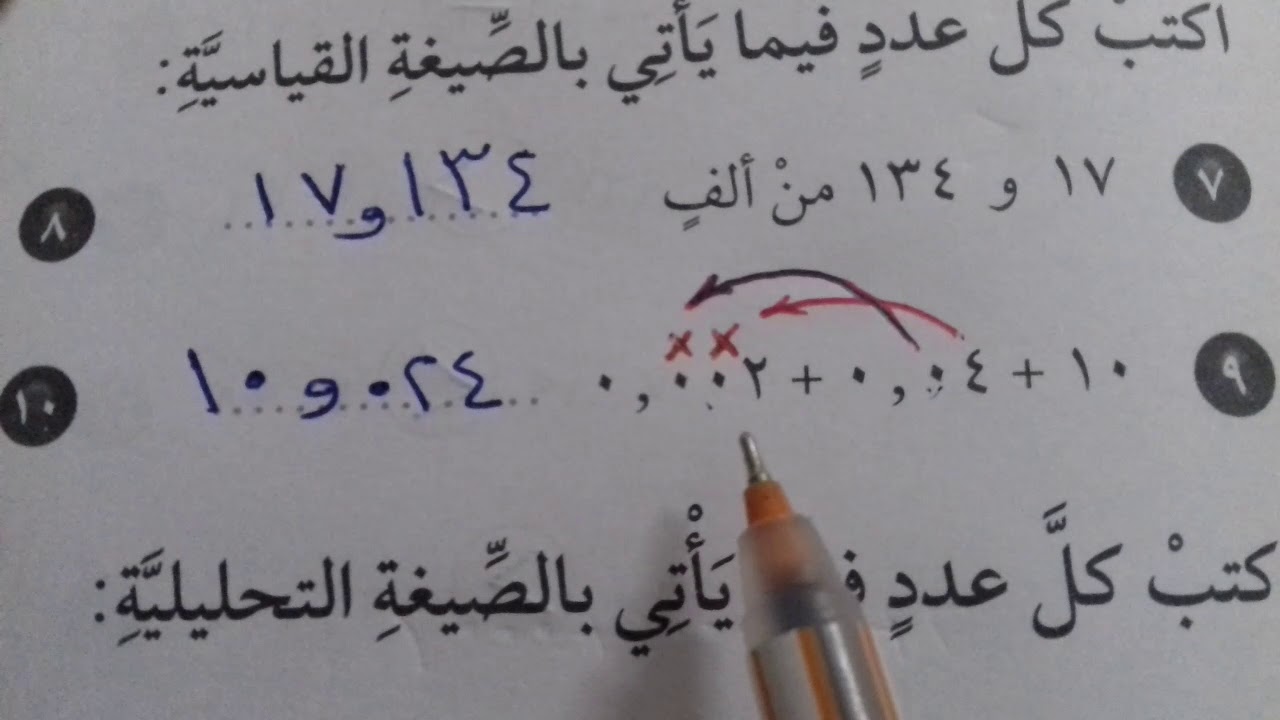 اكتبْ كل عددٍ فيما يَأتِي بالصِّيغةِ القياسيَّةِ:
٧ ١٧ و ١٣٤ منْ ألفٍ ١٧و١٣٤ ٨
٩ ١٠ + ٠,٠٤ + ٠,٠٠٢ ١٠و٠٢٤ ١٠
كتبْ كلَّ عددٍ يَأْتِي بالصِّيغةِ التحليليَّةِ: